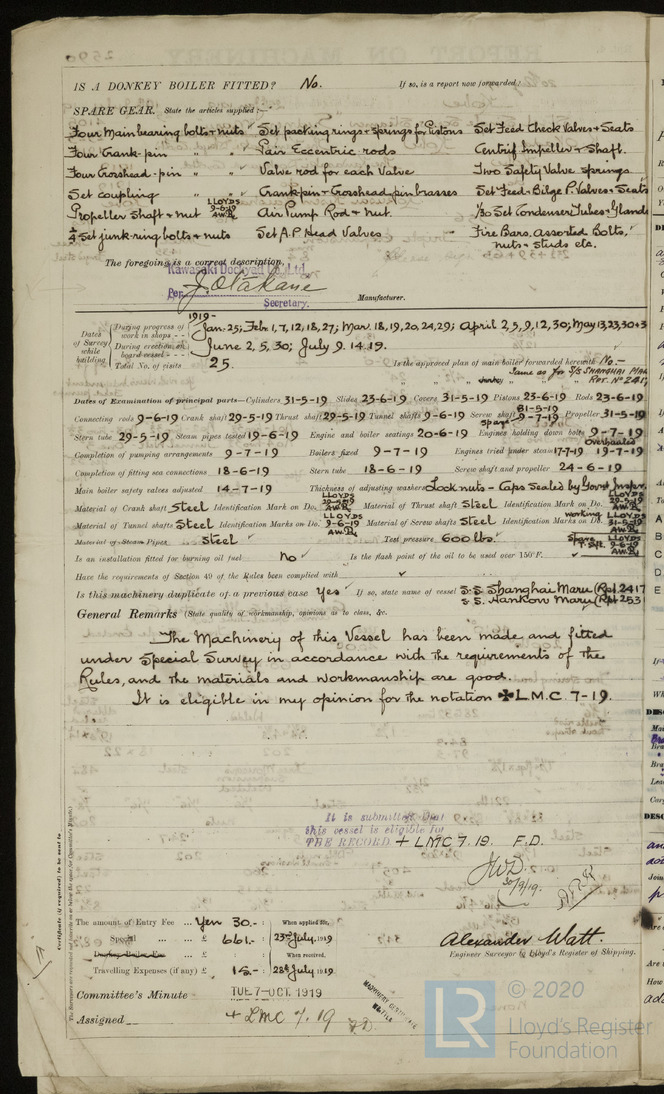 IS A DONKEY BOILER FITTED? No. If so, is a report now forwarded?
SPARE GEAR. State the articles supplied :—
Four Main bearing bolts + nuts Set packing rings + springs for Pistons Set Feed Check Valves + Seats
Four Crank-pin " " Pair Eccentric rods Centrif Impeller + Shaft.
Four Crosshead-pin " " Valve rod for each Valve Two Safety Valve springs
Set coupling " " Crankpin + Crosshead pin brasses Set Feed + Bilge P. Valves + Seats
Propeller Shaft + nut LLOYDS 9-6-19 A.W. Air Pump Rod + nut. 1/30 Set Condenser Tubes + Glands
1/4 Set junk-ring bolts + nuts Set A.P. Head Valves Fire Bars. Assorted Bolts,
nuts + studs etc.
The foregoing is a correct description,
Kawasaki Dockyard Co., Ltd.
Per
Secretary. Manufacturer.
1919-
Dates of Survey while building
During progress of work in shops - - Jan: 25; Feb: 1, 7, 12, 18, 27; Mar. 18, 19, 20, 24, 29; April 2, 5, 9, 12, 30; May 13, 23, 30 + 31
During erection on board vessel - - - June 2, 5, 30; July 9. 14. 19.
Total No. of visits 25. Is the approved plan of main boiler forwarded herewith No. —
Same as for S/S SHANGHAI MARU
" " " donkey " " " RPT. No 2417
Dates of Examination of principal parts—Cylinders 31-5-19 Slides 23-6-19 Covers 31-5-19 Pistons 23-6-19 Rods 23-6-19
Connecting rods 9-6-19 Crank shaft 29-5-19 Thrust shaft 29-5-19 Tunnel shafts 9-6-19 Screw shaft 31-5-19 spare 9-7-19 Propeller 31-5-19
Stern tube 29-5-19 Steam pipes tested 19-6-19 Engine and boiler seatings 20-6-19 Engines holding down bolts 9-7-19
Completion of pumping arrangements 9-7-19 Boilers fixed 9-7-19 Engines tried under steam 17-7-19 overhauled 19-7-19
Completion of fitting sea connections 18-6-19 Stern tube 18-6-19 Screw shaft and propeller 24-6-19
Main boiler safety valves adjusted 14-7-19 Thickness of adjusting washers Lock nuts - Caps Sealed by Govt Inspr.
Material of Crank shaft Steel Identification Mark on Do. LLOYDS 29-5-19 A.W. Material of Thrust shaft Steel Identification Mark on Do. LLOYDS 29-5-19 A.W.
Material of Tunnel shafts Steel Identification Marks on Do. LLOYDS 9-6-19 A.W. Material of Screw shafts Steel Identification Marks on Do. working LLOYDS 31-5-19 A.W.
Material of Steam Pipes Steel Test pressure 600 lbs. Spare T. Sft. LLOYDS 9-6-19 A.W.
Is an installation fitted for burning oil fuel No Is the flash point of the oil to be used over 150°F. ✓
Have the requirements of Section 49 of the Rules been complied with ✓
Is this machinery duplicate of a previous case Yes If so, state name of vessel S.S. Shanghai Maru (Rpt 2417
S.S. Hankow Maru (Rpt 253
General Remarks (State quality of workmanship, opinions as to class, &c.
The Machinery of this Vessel has been made and fitted
under Special Survey in accordance with the requirements of the
Rules, and the materials and workmanship are good.
It is eligible in my opinion for the notation ✠ L.M.C. 7-19.
It is submitted that
this vessel is eligible for
THE RECORD + LMC 7. 19. F.D.
JWD.
30/9/19.
The amount of Entry Fee ... Yen 30.- : When applied for,
Special ... ... £ 661.- : 23rd July, 1919
Donkey Boiler Fee ... ... £ : When received,
Travelling Expenses (if any) £ 15.- : 28th July, 1919
Alexander Watt.
Engineer Surveyor to Lloyd's Register of Shipping.
Committee's Minute TUE 7-OCT. 1919
Assigned + LMC 7. 19 F.D.
MACHINERY CERTIFICATE
WRITTEN
Certificate (if required) to be sent to
LR © 2020
Lloyd's Register
Foundation